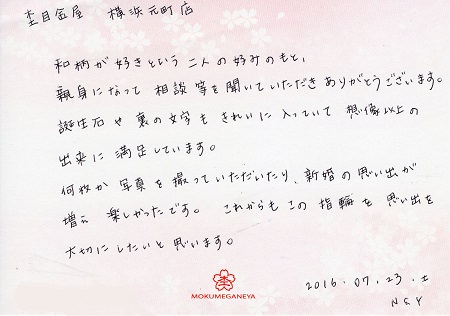 杢目金屋 横浜元町店
和柄が好きという二人の好みのもと、
親身になって相談等を聞いていただきありがとうございます。
誕生石や裏の文字もきれいに入っていて想像以上の
出来に満足しています。
何枚か写真を撮っていただいたり、新婚の思い出が
増え楽しかったです。これからもこの指輪を思い出を
大切にしたいと思います。
MOKUMEGANEYA
2016.07.23.土
N&Y